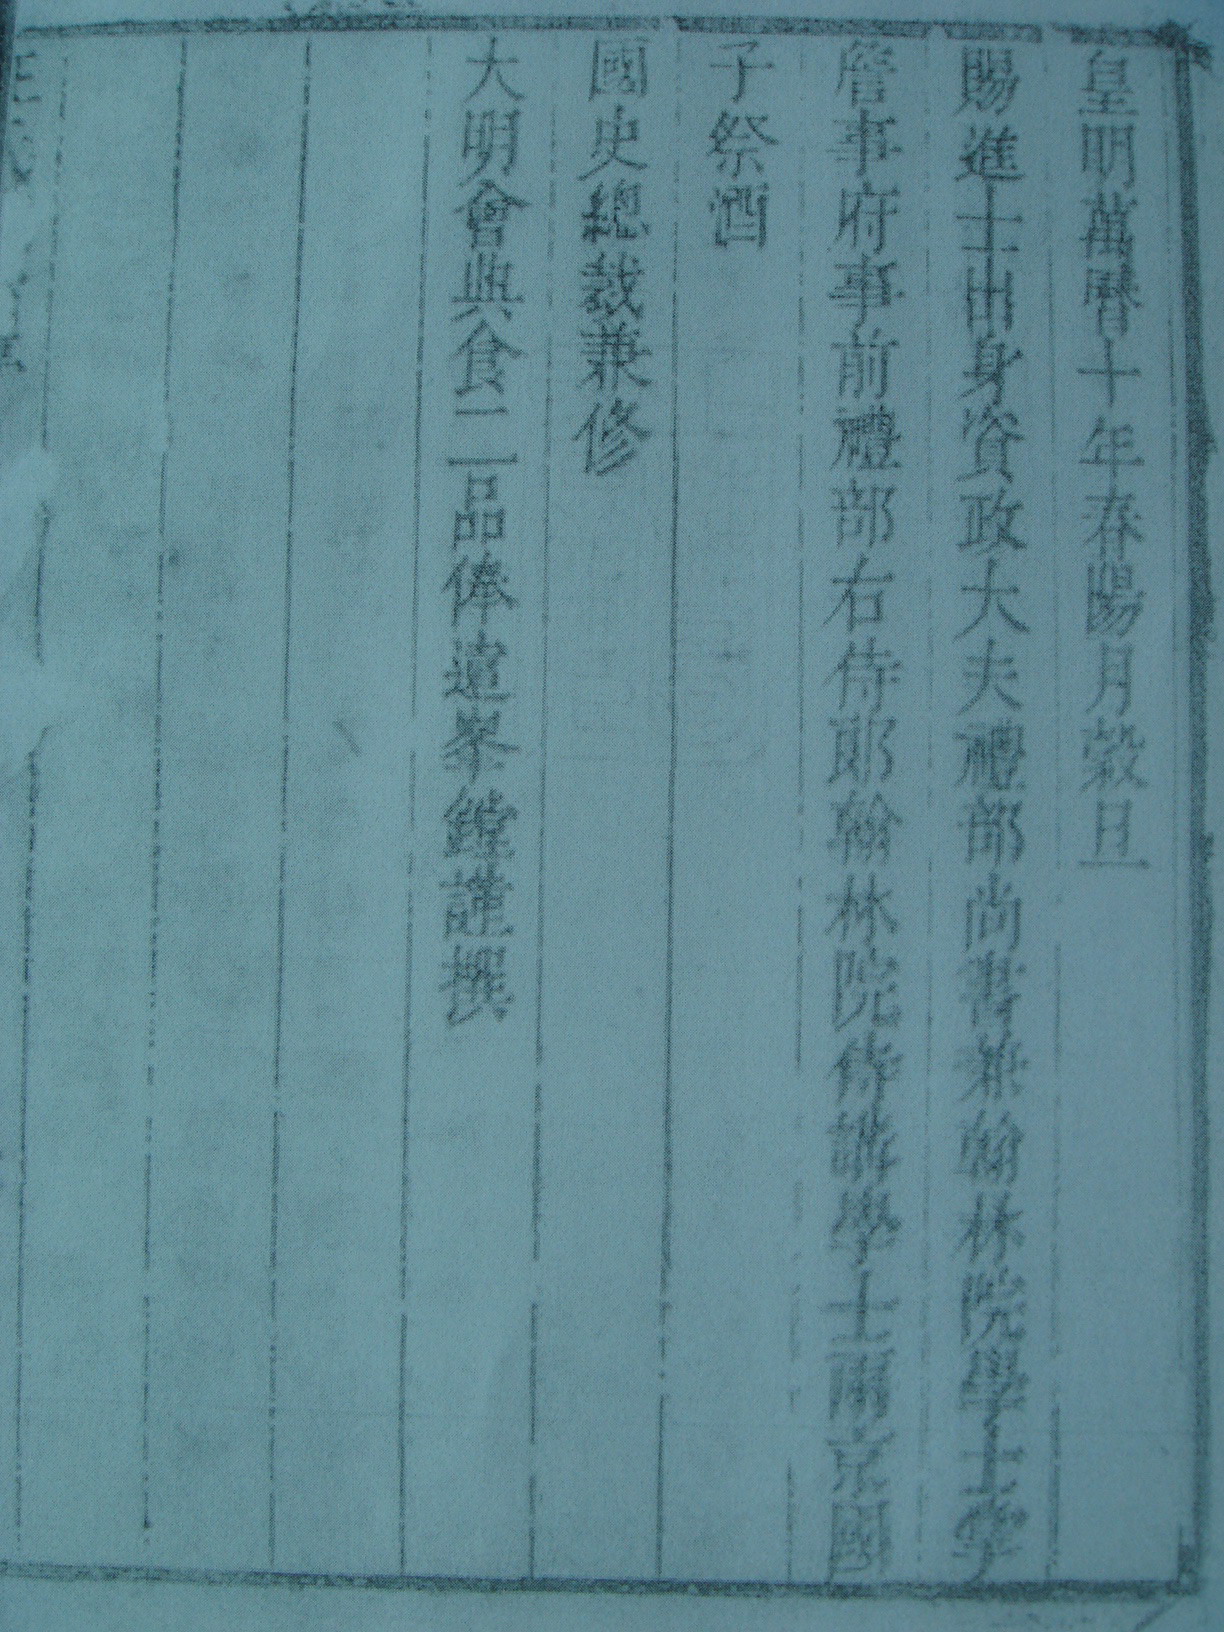 皇明萬曆十年春陽月穀旦
賜進士出身資政大夫禮部尚書兼翰林院學士掌
詹事府事前禮部右侍郎翰林院侍講學士兩京國
子祭酒
國史總裁兼修
大明會典食二品俸峯謹撰